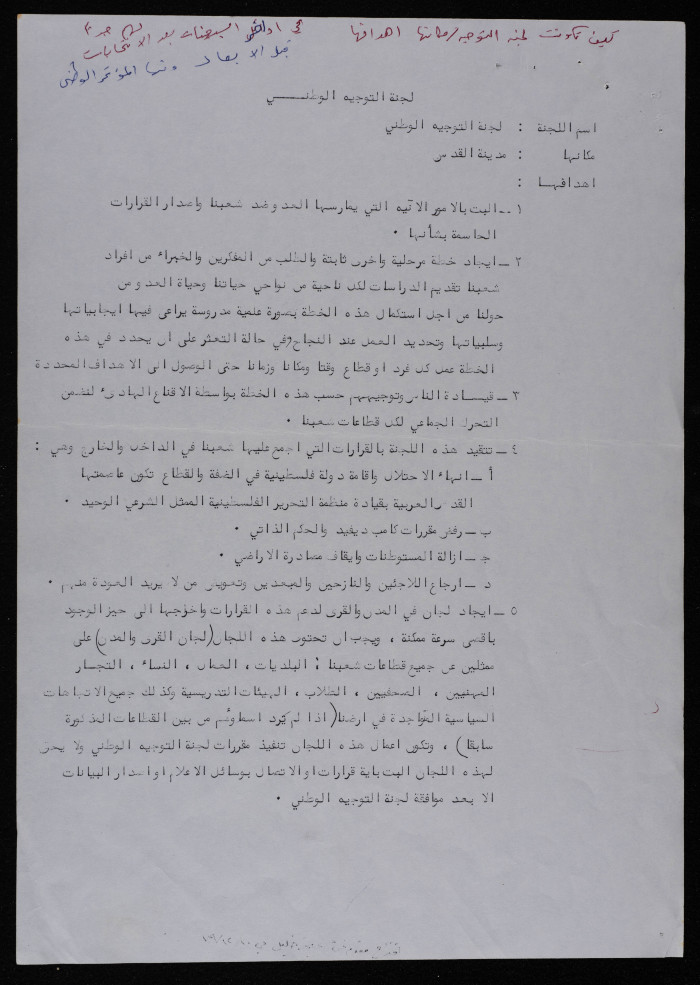 كيف تكونت لجنة التوجيه ومكانتها اهدافها
في اواخر السبعينات بعد الانتخابات
قبل الابعاد ومنها المؤتمر الوطني
لجنة التوجيه الوطنــي
اسم اللجنة : لجنة التوجيه الوطني
مكانها : مدينة القدس
اهدافهـا :
١ ــ البت بالامور الآتيه التي يمارسها العدو ضد شعبنا واصدار القرارات
الحاسمة بشأنها .
٢ ــ ايجاد خطة مرحلية واخرى ثابتة والطلب من المفكرين والخبراء من افراد
شعبنا تقديم الدراسات لكل ناحية من نواحي حياتنا وحياة العدو من
حولنا من اجل استكمال هذه الخطة بصورة علمية مدروسة يراعى فيها ايجابياتها
وسلبياتها وتحديد العمل عند النجاح وفي حالة التعثر على ان يحدد في هذه
الخطة عمل كل فرد او قطاع وقتا ومكانا وزمانا حتى الوصول الى الاهداف المحددة
٣ ــ قيـادة الناس وتوجيههم حسب هذه الخطة بواسطة الاقناع الهادىء لنضمن
التحرك الجماعي لكل قطاعات شعبنا .
٤ ــ تتقيد هذه اللجنة بالقرارات التي اجمع عليها شعبنا في الداخل والخارج وهي :
أ ــ انهاء الاحتلال واقامة دولة فلسطينية في الضفة والقطاع تكون عاصمتها
القدس العربية بقيادة منظمة التحرير الفلسطينية الممثل الشرعي الوحيد .
ب ــ رفض مقررات كامب ديفيد والحكم الذاتي .
جـ ــ ازالة المستوطنات وايقاف مصادرة الاراضي .
د ــ ارجاع اللاجئين والنازحين والمبعدين وتعويض من لا يريد العودة منهم .
٥ ــ ايجاد لجان في المدن والقرى لدعم هذه القرارات واخراجها الى حيز الوجود
باقصى سرعة ممكنة ، ويجب ان تحتوى هذه اللجان (لجان القرى والمدن) على
ممثلين عن جميع قطاعات شعبنا ; البلديات ، العمال ، النساء ، التجـار
المهنيين ، الصحفيين ، الطلاب ، الهيئات التدريسية وكذلك جميع الاتجاهات
السياسية المتواجدة في ارضنا (اذا لم يرد اسماؤهم من بين القطاعات المذكورة
سابقا) ، وتكون اعمال هذه اللجان تنفيذ مقررات لجنة التوجيه الوطني ولا يحق
لهذه اللجان البت باية قرارات او الاتصال بوسائل الاعلام او اصدار البيانات
الا بعد موافقة لجنة التوجيه الوطني .